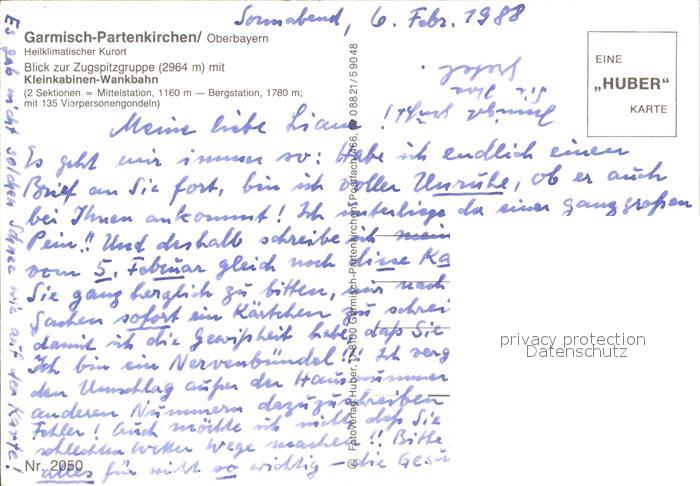 Sonnabend, 6. Febr. 1988
Garmisch-Partenkirchen/ Oberbayern
Heilklimatischer Kurort
Blick zur Zugspitzgruppe (2964 m) mit
Kleinkabinen-Wankbahn
(2 Sektionen = Mittelstation, 1160 m — Bergstation, 1780 m;
mit 135 Vierpersonengondeln)
EINE
„HUBER"
KARTE
Meine liebe
Es geht mir immer so: Habe ich endlich einen
Brief an Sie fort, bin ich voller Unruhe, ob er auch
bei Ihnen ankommt! Ich unterliege da einer ganz großen
Pein!! Und deshalb schreibe ich
vom 5. Februar gleich noch diese Ka
Sie ganz herzlich zu bitten, mir nach
sofort ein Kärtchen zu schrei
damit ich die Gewißheit habe, daß Sie
Ich bin ein Nervenbündel!!! Ich verg
den Umschlag außer der Hausnummer
anderen Nummern dazuzuschreiben
Fehler! Auch möchte ich nicht, daß Sie
schlechten Wetter Wege machen!! Bitte
alles für nicht so wichtig – die Gesu
Nr. 2050
Es gab nicht solchen Schnee wie auf der Karte!
© Fotoverlag Huber, 8100 Garmisch-Partenkirchen, Postfach 466, ☎ 08821/59048
privacy protection
Datenschutz